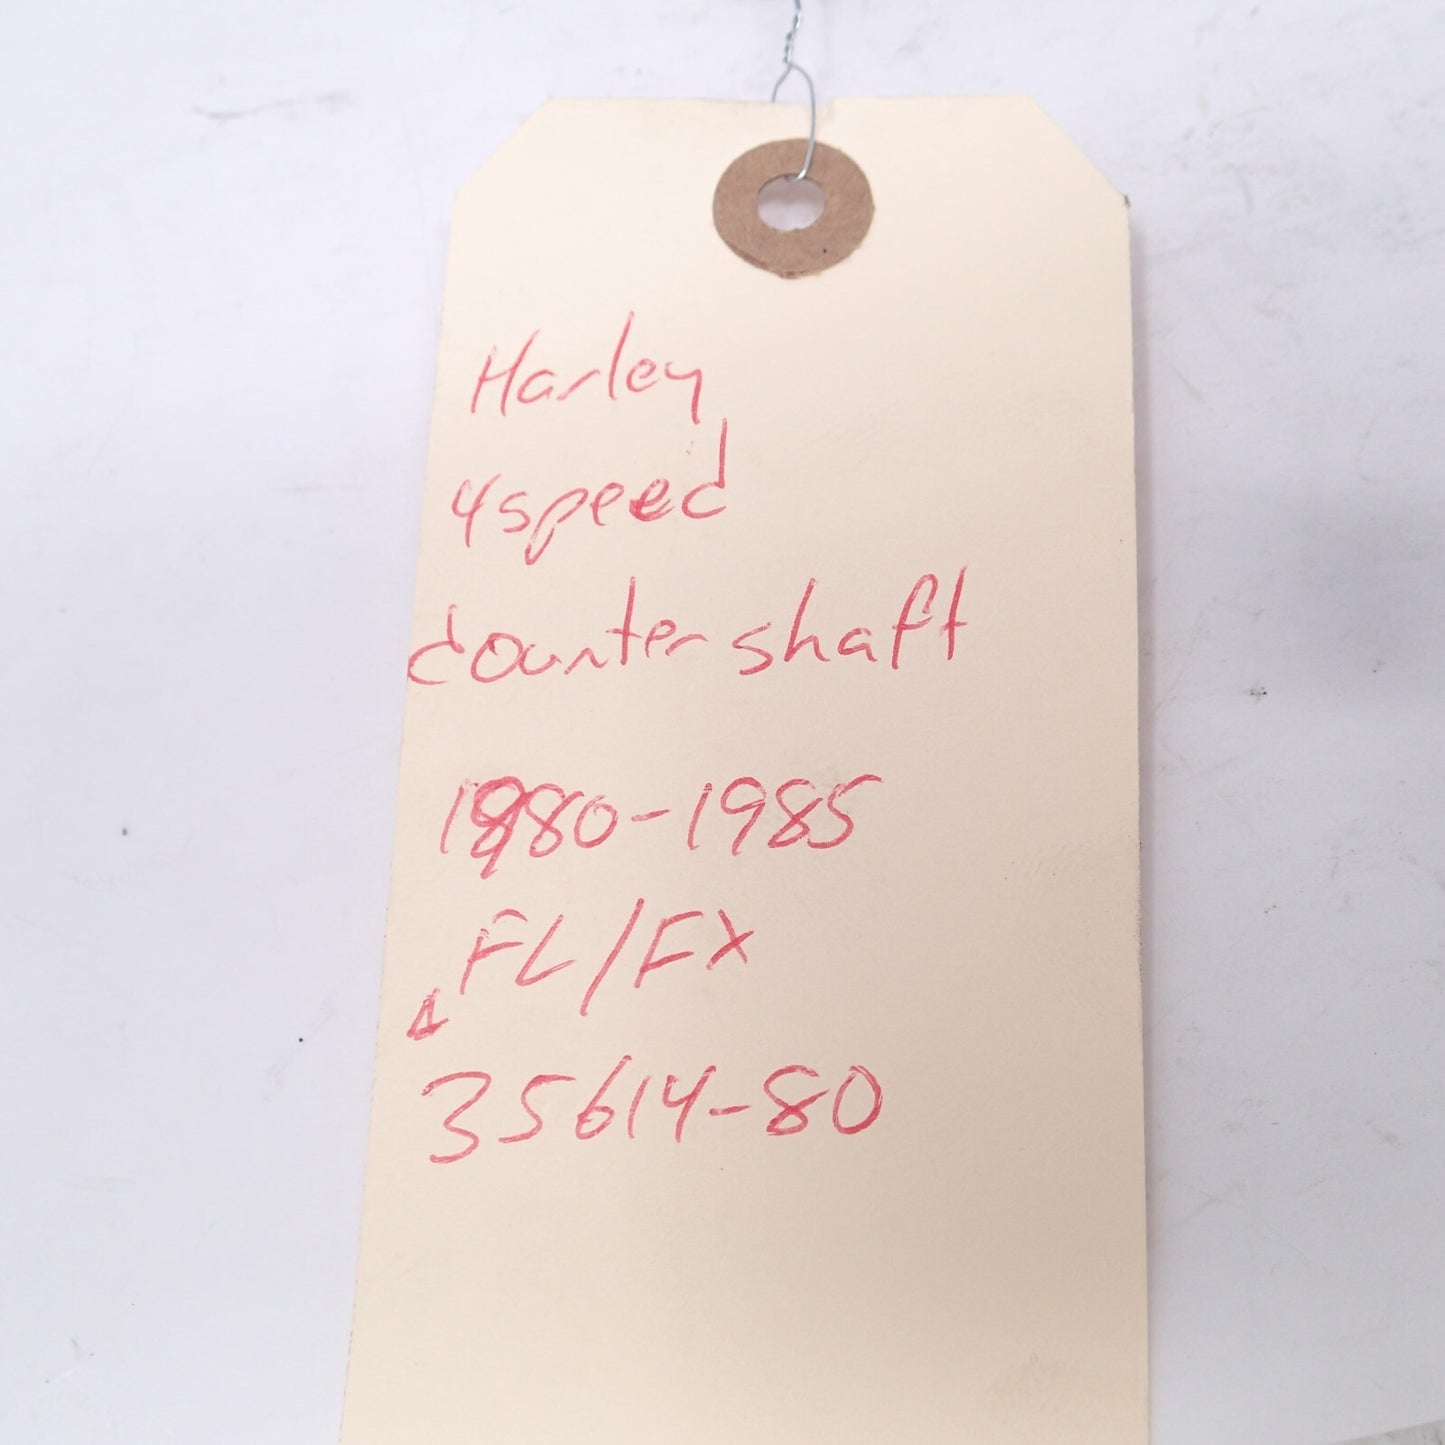 Harley
4speed
countershaft
1980-1985
FL/FX
35614-80